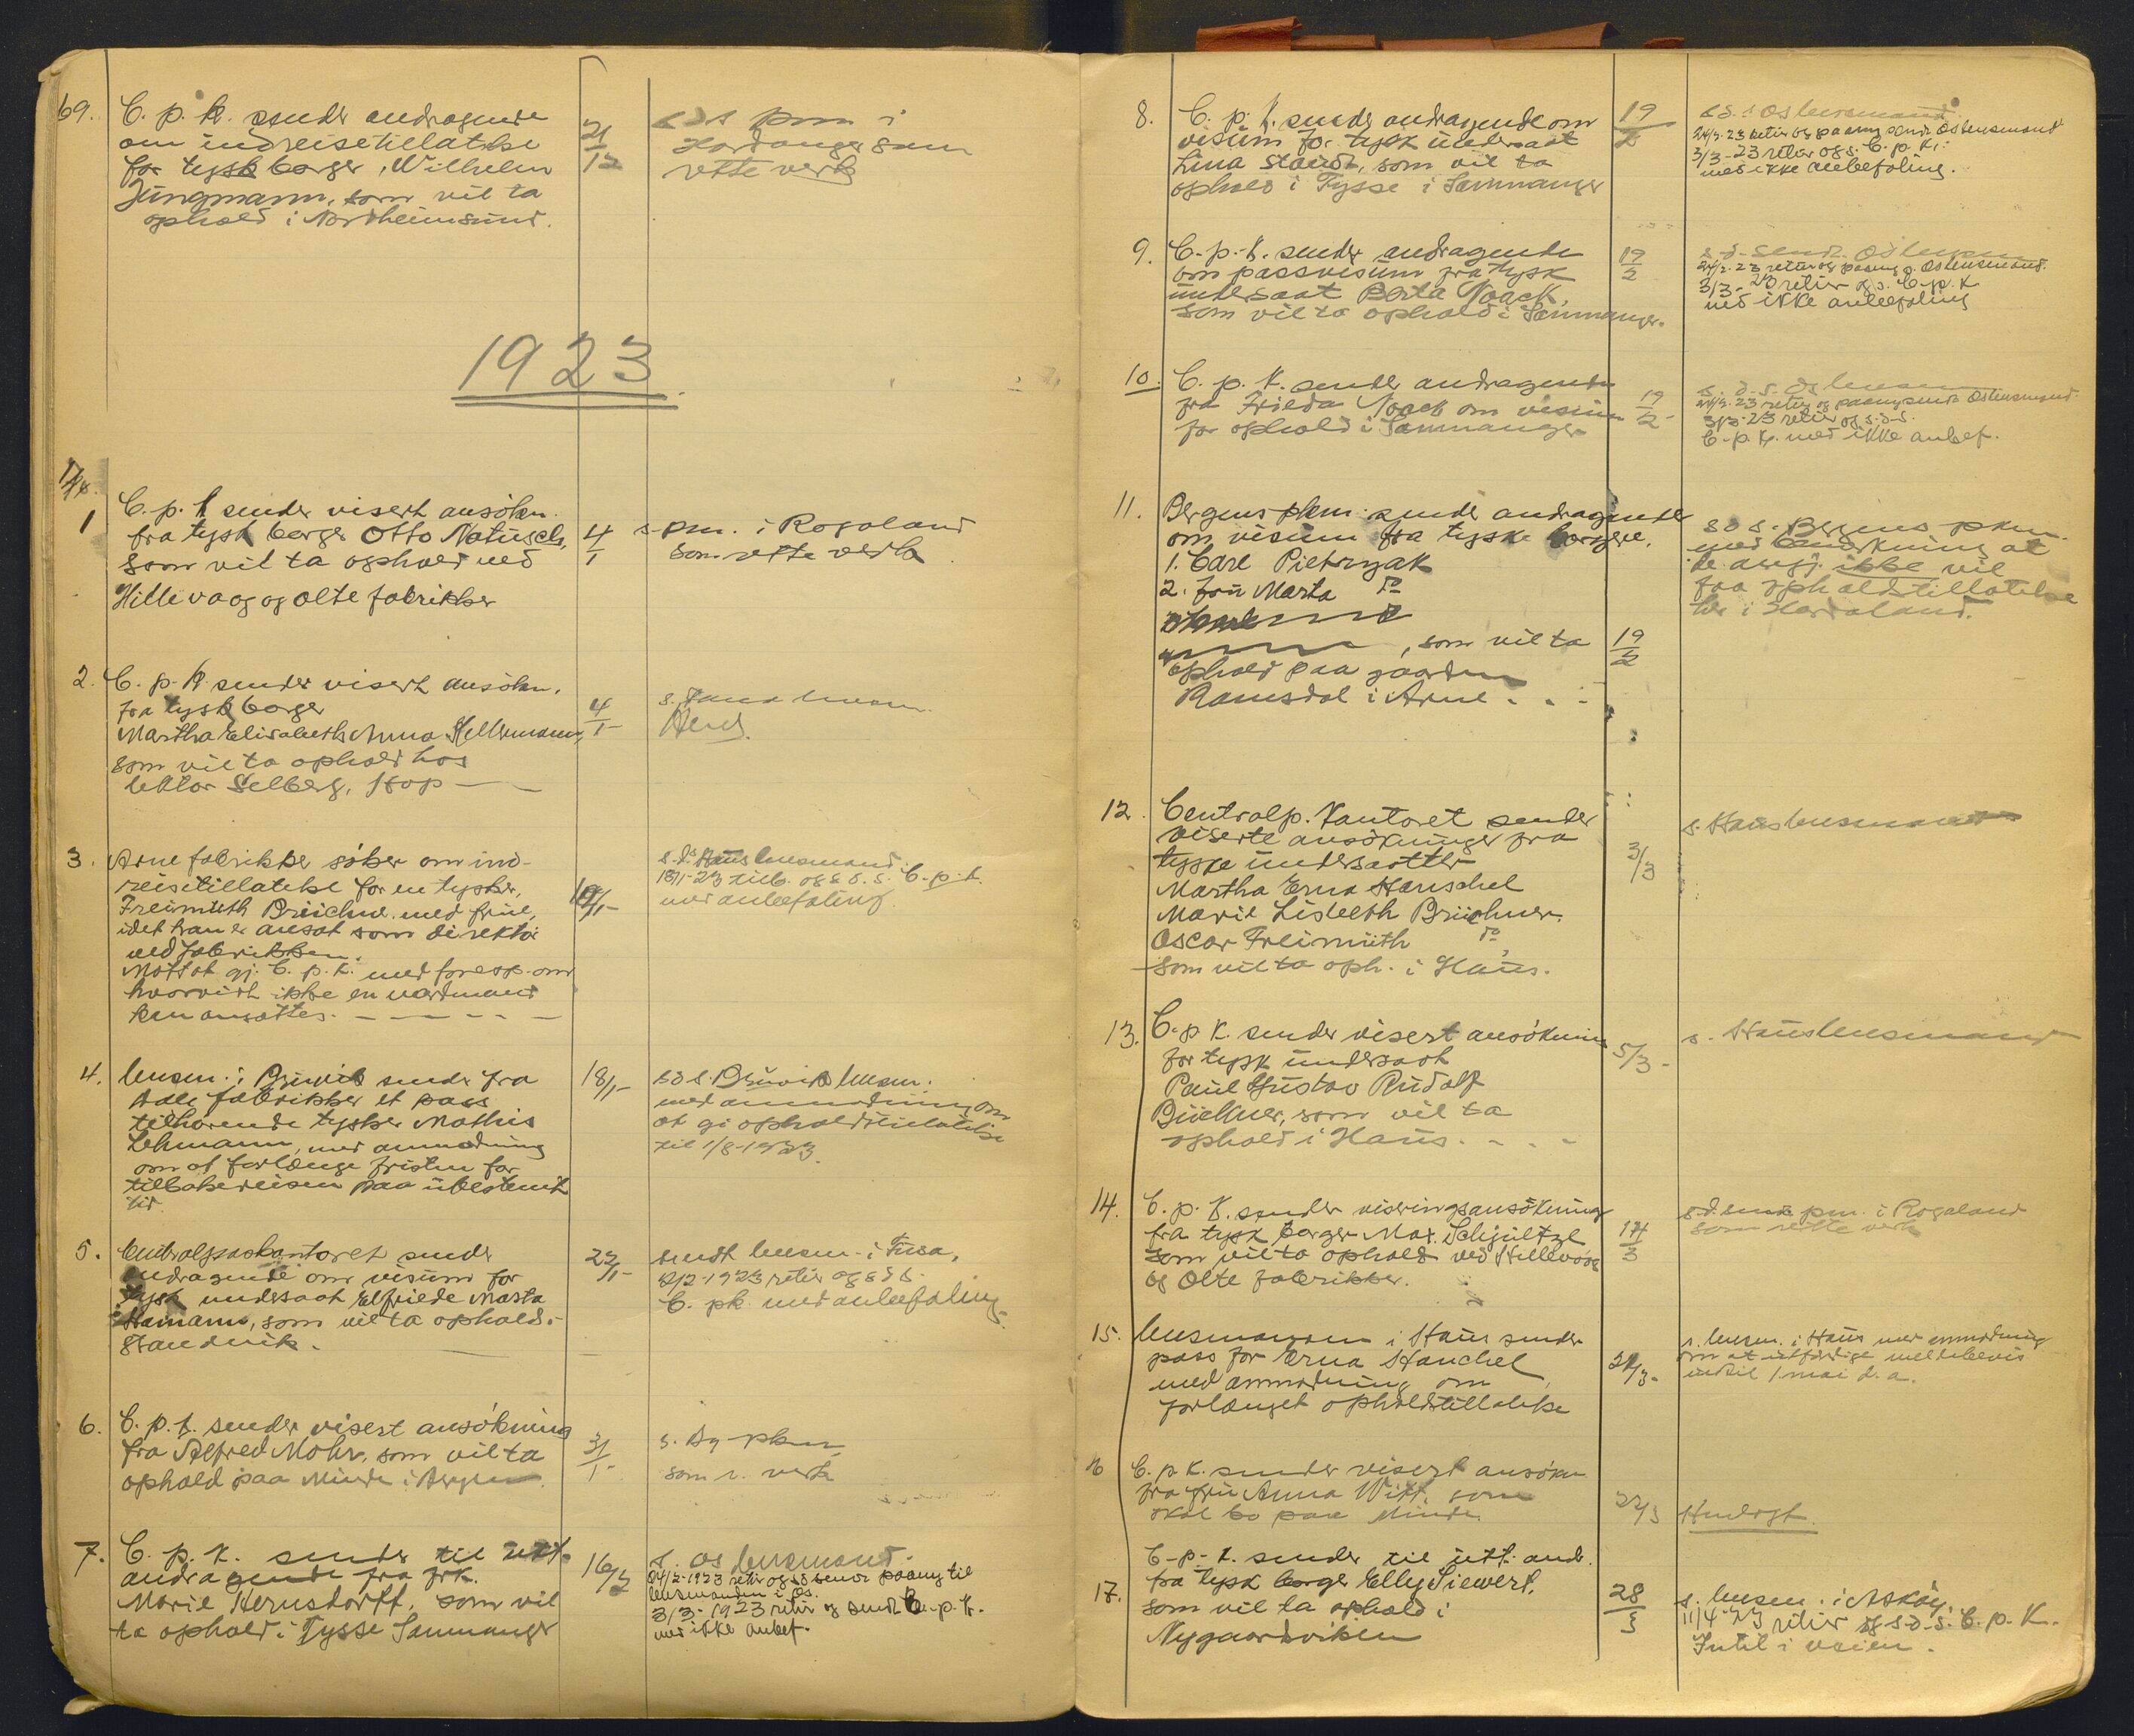 69. C. p. k. sender andragende 21/12 s d s pm i
om indreisetillatelse Hardanger som
for tysk borger, Wilhelm rette verk
Jungmann, som vil ta
ophold i Nordheimsund.
1923.
1 C. p. k sender visert ansökn. 4/1 s. pm. i Rogaland
fra tysk borger Otto Natusch, som rette verk
som vil ta ophold ved
Hillevaag og Olte fabrikker
2. C. p. k. sender visert ansökn. 4/1 s. Fana lensm.
fra tysk borger
Martha Elisabeth Anna Kellermann,
som vil ta ophold hos
lektor Selberg, Hop —
3. Arne fabrikker söker om ind- s. d. s Haus lensmand.
reisetillatelse for en tysker, 18/1-23 tilb. og s. d. s. C. p. k.
Freimuth Brückner med frue, med anbefaling.
idet han er ansat som direktör
ved fabrikken.
Mottat gj. C. p. k. med foresp. om
hvorvidt ikke en nordmand
kan ansættes. — — — — —
4. lensm. i Bruvik sender fra 18/1- s d s. Bruvik lensm.
Dale fabrikker et pass med anmodning om
tilhörende tysker Mathis at gi opholdstillatelse
Lehmann, med anmodning til 1/8-1923.
om at forlænge fristen for
tilbakereisen paa ubestemt
tid.
5. Centralpaskontoret sender 22/1- sendt lensm. i Fusa,
andragende om visum for 12/2-1923 retur og s d s.
tysk undersaat Elfriede Marta C. pk. med anbefaling.
Hamann, som vil ta ophold i
Strandvik.
6. C. p. k. sender visert ansökning 31/1- s. Bg pkm
fra Alfred Mohr, som vil ta som r. verk
ophold paa Minde i Bergen.
7. C. p. k. sender til utt. 16/2 s. Os lensmand.
andragende fra frk. 24/2-1923 retur og sd sendt paany til
Marie Hernsdorff, som vil lensmanden i Os.
ta ophold i Tysse Samnanger 3/3-1923 retur og sendt C. p. k.
med ikke anbef.
8. C. p. k. sender andragende om 19/2 s d. s Os lensmand.
visum for tysk undersaat 24/2-23 retur og paany sendt Os lensmand
Lina Staudt, som vil ta 3/3-23 retur og s. C. p. k.
ophold i Tysse i Samnanger med ikke anbefaling.
9. C. p. k. sender andragende 19/2 s. d. sendt. Os lensm
om passvisum fra tysk 24/2-23 retur og paany s. Os lensmand.
undersaat Berta Noack, 3/3-23 retur og s. C. p. k
som vil ta ophold i Samnanger. med ikke anbefaling
10. C. p. k. sender andragende 19/2- s. d. s. Os lensm
fra Frieda Noack om visum 24/2-23 retur og paany sendt Os lensmand.
for ophold i Samnanger 3/3-23 retur og s. d. s.
C. p. k. med ikke anbef.
11. Bergens pkm. sender andragender s d s. Bergens pkm.
om visum fra tyske borgere. med bemerkning at
1. Carl Pietrzak de ikke vil
2. fru Marta do faa opholdstillatelse
her i Hordaland.
, som vil ta 19/2
ophold paa gaarden
Ramsdal i Arne . . .
12. Centralp. kontoret sender s. Haus lensmand
viserte ansökninger fra
tyske undersaatter 3/3
Martha Erna Hanschel
Marie Lisbeth Brückner.
Oscar Freimuth do,
som vil ta oph. i Haus.
13. C. p k. sender visert ansökning 5/3- s. Haus lensmand
for tysk undersaat
Paul Gustav Rudolf
Bückner, som vil ta
ophold i Haus. - - -
14. C. p. k. sender viseringsansökning s. d. sendt pm. i Rogaland
fra tysk borger Max Schjültze 14/3 som rette verk
som vil ta ophold ved Hillevaag
og Olte fabrikker.
15. lensmannen i Haus sender s. lensm. i Haus med anmodning
pass for Erna Hanchel 21/3- om at utfærdige meldebevis
med anmodning om indtil 1 mai d. a.
forlænget opholdstillatelse
16 C. p k. sender visert ansökn
fra fru Anna Witt, som 22/3 Henlagt.
skal bo paa Minde.
C. p. k. sender til utt. andr.
fra tysk borger Elly Siewert,
17. som vil ta ophold i 28/3 s. lensm. i Asköy.
Nygaardsviken 11/4-23 retur og s. d. s. C. p. K.
Intet i veien.